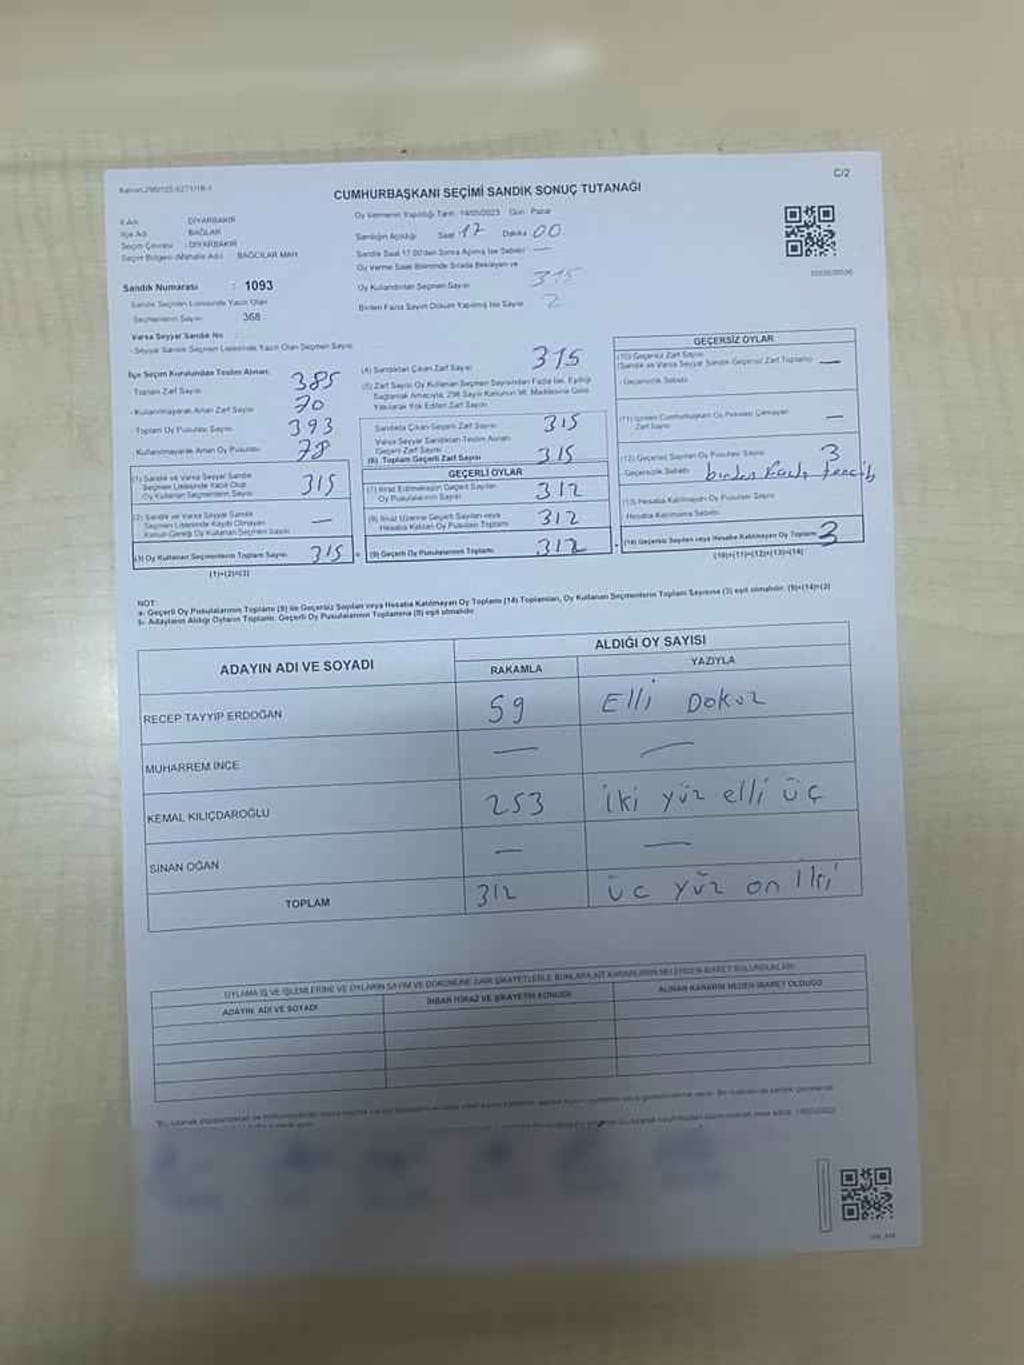 C/2
CUMHURBAŞKANI SEÇİMİ SANDIK SONUÇ TUTANAĞI
İl Adı : DİYARBAKIR
İlçe Adı : BAĞLAR
Seçim Çevresi : DİYARBAKIR
Seçim Bölgesi (Mahalle Adı) : BAĞCILAR MAH
Sandık Numarası : 1093
Sandık Seçmen Listesinde Yazılı Olan
Seçmenlerin Sayısı : 368
Varsa Seyyar Sandık No :
- Seyyar Sandık Seçmen Listesinde Yazılı Olan Seçmen Sayısı
Oy Vermenin Yapıldığı Tarih : 14/05/2023 Gün : Pazar
Sandığın Açıldığı Saat 17 Dakika 00
Sandık Saat 17.00'den Sonra Açılmış İse Sebebi —
Oy Verme Saati Bitiminde Sırada Bekleyen ve
Oy Kullandırılan Seçmen Sayısı 315
Birden Fazla Sayım Döküm Yapılmış İse Sayısı 2
İlçe Seçim Kurulundan Teslim Alınan:
- Toplam Zarf Sayısı 385
- Kullanılmayarak Artan Zarf Sayısı 70
- Toplam Oy Pusulası Sayısı 393
- Kullanılmayarak Artan Oy Pusulası 78
(1) Sandık ve Varsa Seyyar Sandık
Seçmen Listesinde Yazılı Olup
Oy Kullanan Seçmenlerin Sayısı 315
(2) Sandık ve Varsa Seyyar Sandık
Seçmen Listesinde Kaydı Olmayan
Kanun Gereği Oy Kullanan Seçmen Sayısı —
(3) Oy Kullanan Seçmenlerin Toplam Sayısı 315
(1)+(2)=(3)
(4) Sandıktan Çıkan Zarf Sayısı 315
(5) Zarf Sayısı Oy Kullanan Seçmen Sayısından Fazla İse, Eşitliği
Sağlamak Amacıyla, 298 Sayılı Kanunun 98. Maddesine Göre
Yakılarak Yok Edilen Zarf Sayısı
Sandıkta Çıkan Geçerli Zarf Sayısı 315
Varsa Seyyar Sandıktan Teslim Alınan
Geçerli Zarf Sayısı
(6) Toplam Geçerli Zarf Sayısı 315
GEÇERLİ OYLAR
(7) İtiraz Edilmeksizin Geçerli Sayılan
Oy Pusulalarının Sayısı 312
(8) İtiraz Üzerine Geçerli Sayılan veya
Hesaba Katılan Oy Pusulası Toplamı 312
(9) Geçerli Oy Pusulalarının Toplamı 312
GEÇERSİZ OYLAR
(10) Geçersiz Zarf Sayısı
(Sandık ve Varsa Seyyar Sandık Geçersiz Zarf Toplamı) —
- Geçersizlik Sebebi
(11) İçinden Cumhurbaşkanı Oy Pusulası Çıkmayan
Zarf Sayısı —
(12) Geçersiz Sayılan Oy Pusulası Sayısı 3
Geçersizlik Sebebi birden fazla tercih
(13) Hesaba Katılmayan Oy Pusulası Sayısı
Hesaba Katılmama Sebebi
(14) Geçersiz Sayılan veya Hesaba Katılmayan Oy Toplamı 3
(10)+(11)+(12)+(13)=(14)
NOT:
a- Geçerli Oy Pusulalarının Toplamı (9) ile Geçersiz Sayılan veya Hesaba Katılmayan Oy Toplamı (14) Toplamları, Oy Kullanan Seçmenlerin Toplam Sayısına (3) eşit olmalıdır. (9)+(14)=(3)
b- Adayların Aldığı Oyların Toplamı, Geçerli Oy Pusulalarının Toplamına (9) eşit olmalıdır.
ADAYIN ADI VE SOYADI
ALDIĞI OY SAYISI
RAKAMLA YAZIYLA
RECEP TAYYİP ERDOĞAN 59 Elli Dokuz
MUHARREM İNCE — —
KEMAL KILIÇDAROĞLU 253 iki yüz elli üç
SİNAN OĞAN — —
TOPLAM 312 üc yüz on iki
OYLAMA İŞ VE İŞLEMLERİNE VE OYLARIN SAYIM VE DÖKÜMÜNE DAİR ŞİKAYETLERLE BUNLARA AİT KARARLARIN NELERDEN İBARET BULUNDUKLARI
ADAYIN ADI VE SOYADI
İHBAR İTİRAZ VE ŞİKAYETİN KONUSU
ALINAN KARARIN NEDEN İBARET OLDUĞU